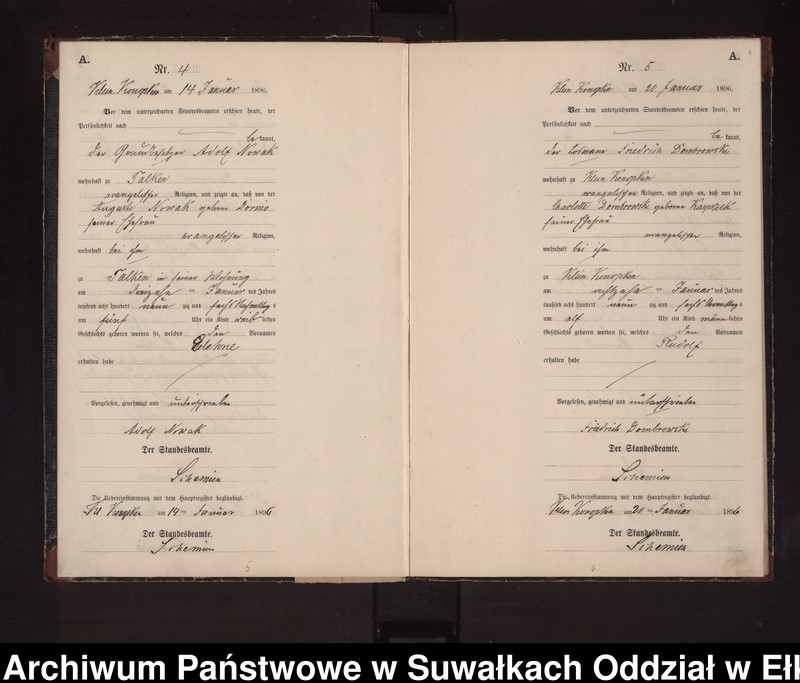 A.
Nr. 4
Klein Konopken am 14 Januar 1896.
Vor dem unterzeichneten Standesbeamten erschien heute, der
Persönlichkeit nach
bekannt,
der Grundbesitzer Adolf Nowak
wohnhaft zu Talken
evangelischer Religion, und zeigte an, daß von der
Auguste Nowak geborne
seiner Ehefrau
evangelischer Religion,
wohnhaft bei ihm
zu Talken in seiner Wohnung
am dreizehn ten Januar des Jahres
tausend acht hundert neun zig und sechs Nachmittags
um fünf Uhr ein Kind weiblichen
Geschlechts geboren worden sei, welches den Vornamen
erhalten habe
Vorgelesen, genehmigt und unterschrieben
Adolf Nowak
Der Standesbeamte.
Schemien
Die Uebereinstimmung mit dem Hauptregister beglaubigt.
Kl Konopken am 14 ten Januar 1896
Der Standesbeamte.
Schemien
5
A.
Nr. 5
Klein Konopken am 20 Januar 1896.
Vor dem unterzeichneten Standesbeamten erschien heute, der
Persönlichkeit nach
bekannt,
der Losmann Friedrich Dombrowski
wohnhaft zu Klein Konopken
evangelischer Religion, und zeigte an, daß von der
Charlotte Dombrowski geborene
seiner Ehefrau
evangelischer Religion,
wohnhaft bei ihm
zu Klein Konopken
am achtzehn ten Januar des Jahres
tausend acht hundert neun zig und sechs Vormittags
um elf Uhr ein Kind männlichen
Geschlechts geboren worden sei, welches den Vornamen
Rudolf
erhalten habe
Vorgelesen, genehmigt und unterschrieben
Friedrich Dombrowski
Der Standesbeamte.
Schemien
Die Uebereinstimmung mit dem Hauptregister beglaubigt.
Klein Konopken am 20 ten Januar 1896
Der Standesbeamte.
Schemien
6
Archiwum Państwowe w Suwałkach Oddział w Ełk